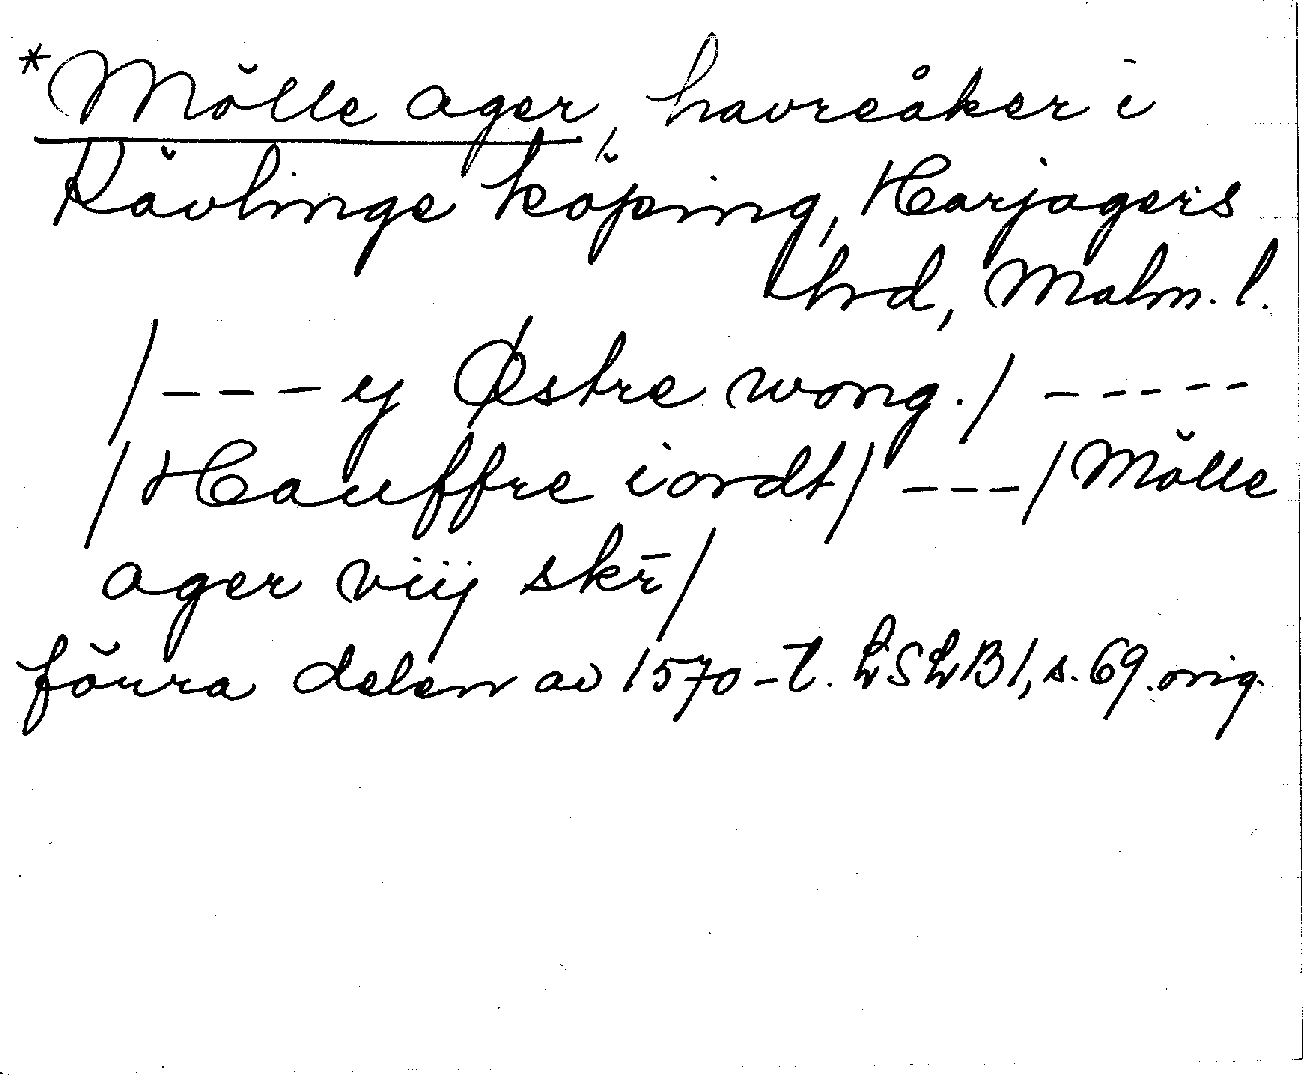 *Mölle ager, havreåker i
Kävlinge köping, Harjagers
hrd, Malm. l.
/---y Østre wong./-----
/Hauffre iordt/---/Mölle
ager viij skr̄/
förra delen av 1570-t. LSLB1, s. 69. orig.